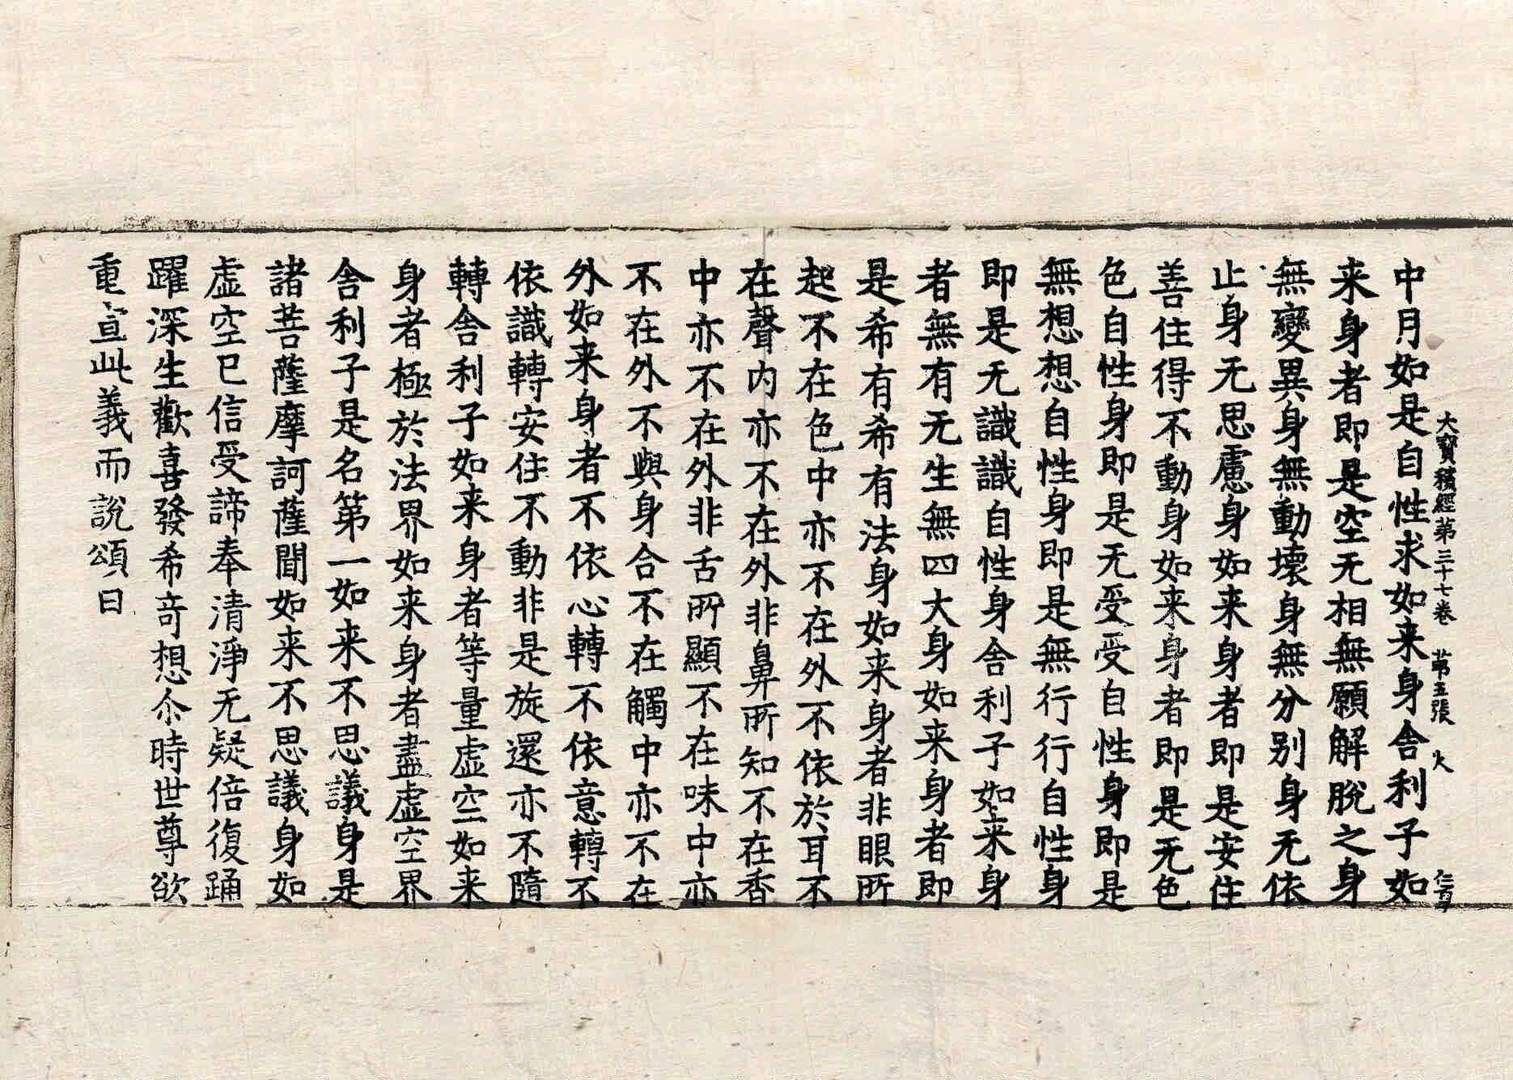 大寶積經第三十七卷　第五張　火
中月如是自性求如来身舍利子如
来身者即是空无相無願解脫之身
無變異身無動壞身無分别身无依
止身无思慮身如来身者即是安住
善住得不動身如来身者即是无色
色自性身即是无受受自性身即是
無想想自性身即是無行行自性身
即是无識識自性身舍利子如来身
者無有无生無四大身如来身者即
是希有希有法身如来身者非眼所
起不在色中亦不在外不依於耳不
在聲内亦不在外非鼻所知不在香
中亦不在外非舌所顯不在味中亦
不在外不與身合不在觸中亦不在
外如来身者不依心轉不依意轉不
依識轉安住不動非是旋還亦不隨
轉舍利子如来身者等量虚空如来
身者極於法界如来身者盡虚空界
舍利子是名第一如来不思議身是
諸菩薩摩訶薩聞如来不思議身如
虚空已信受諦奉清淨无疑倍復踊
躍深生歡喜發希奇想尒時世尊欲
重宣此義而說頌曰